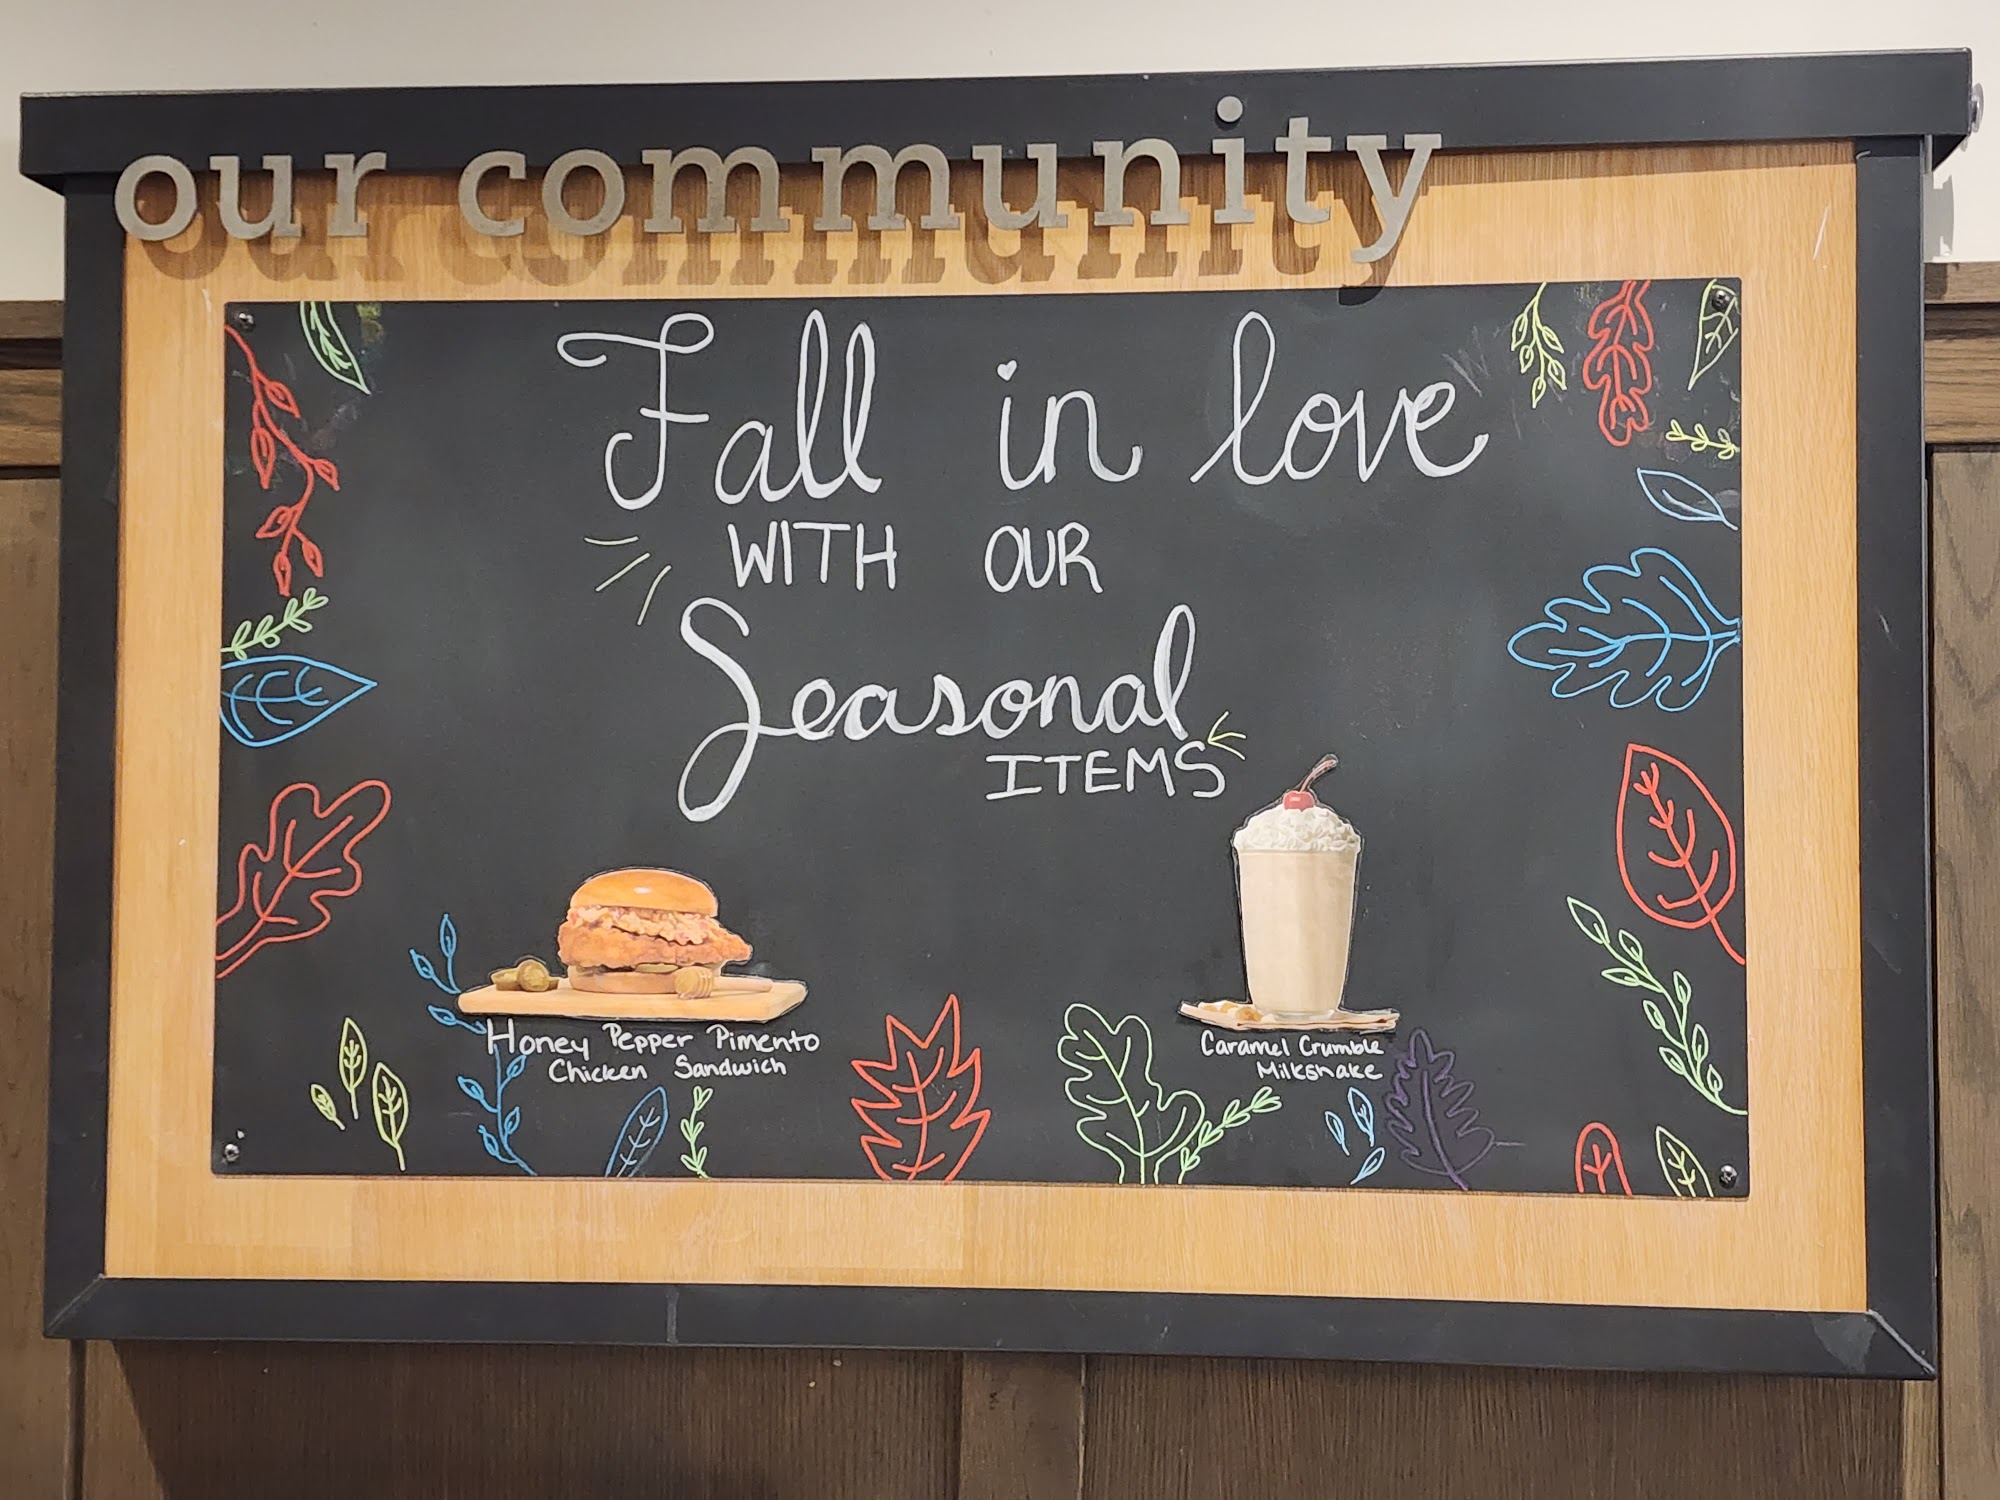 our community
Fall in love
WITH OUR
Seasonal
ITEMS
Honey Pepper Pimento
Chicken Sandwich
Caramel Crumble
Milkshake